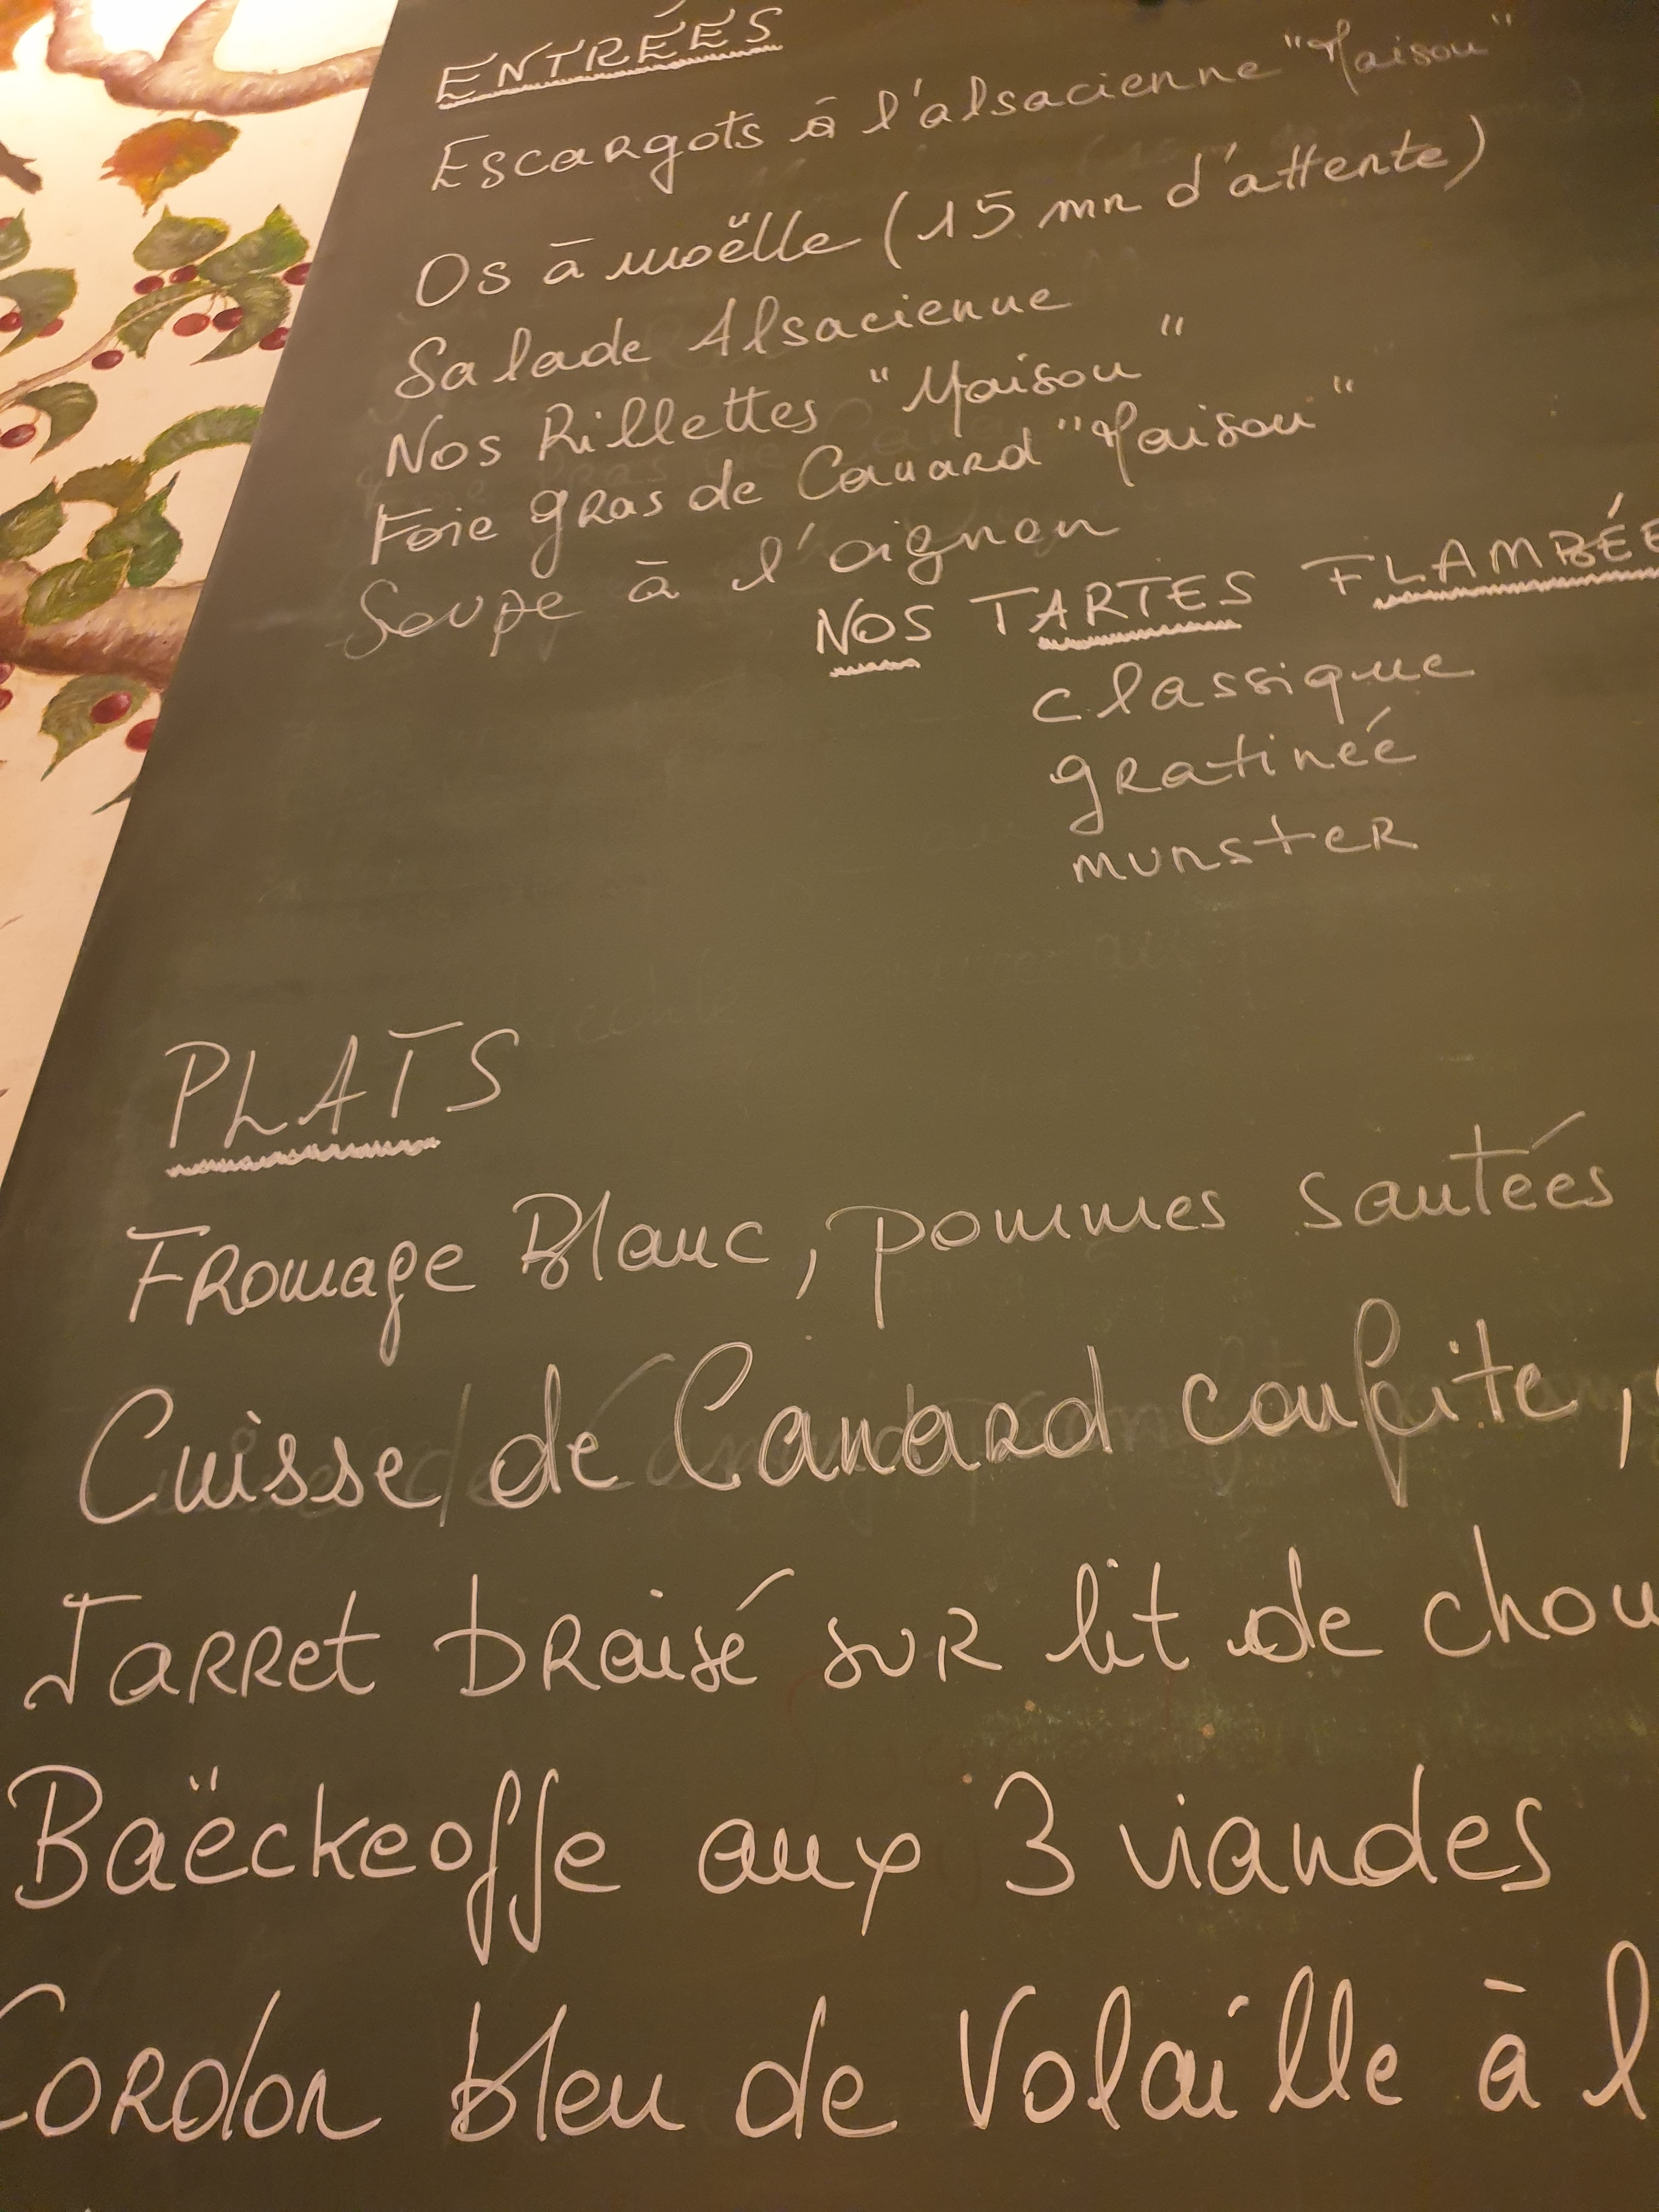 ENTRÉES
Escargots à l'alsacienne "Maison"
Os à moëlle (15 mn d'attente)
Salade Alsacienne
Nos Rillettes "Maison"
Foie gras de Canard "Maison"
Soupe à l'oignon
NOS TARTES FLAMBÉE
classique
gratinée
munster
PLATS
Fromage Blanc, pommes sautées
Cuisse de Canard confite,
Jarret braisé sur lit de chou
Baëckeoffe aux 3 viandes
Cordon bleu de Volaille à l